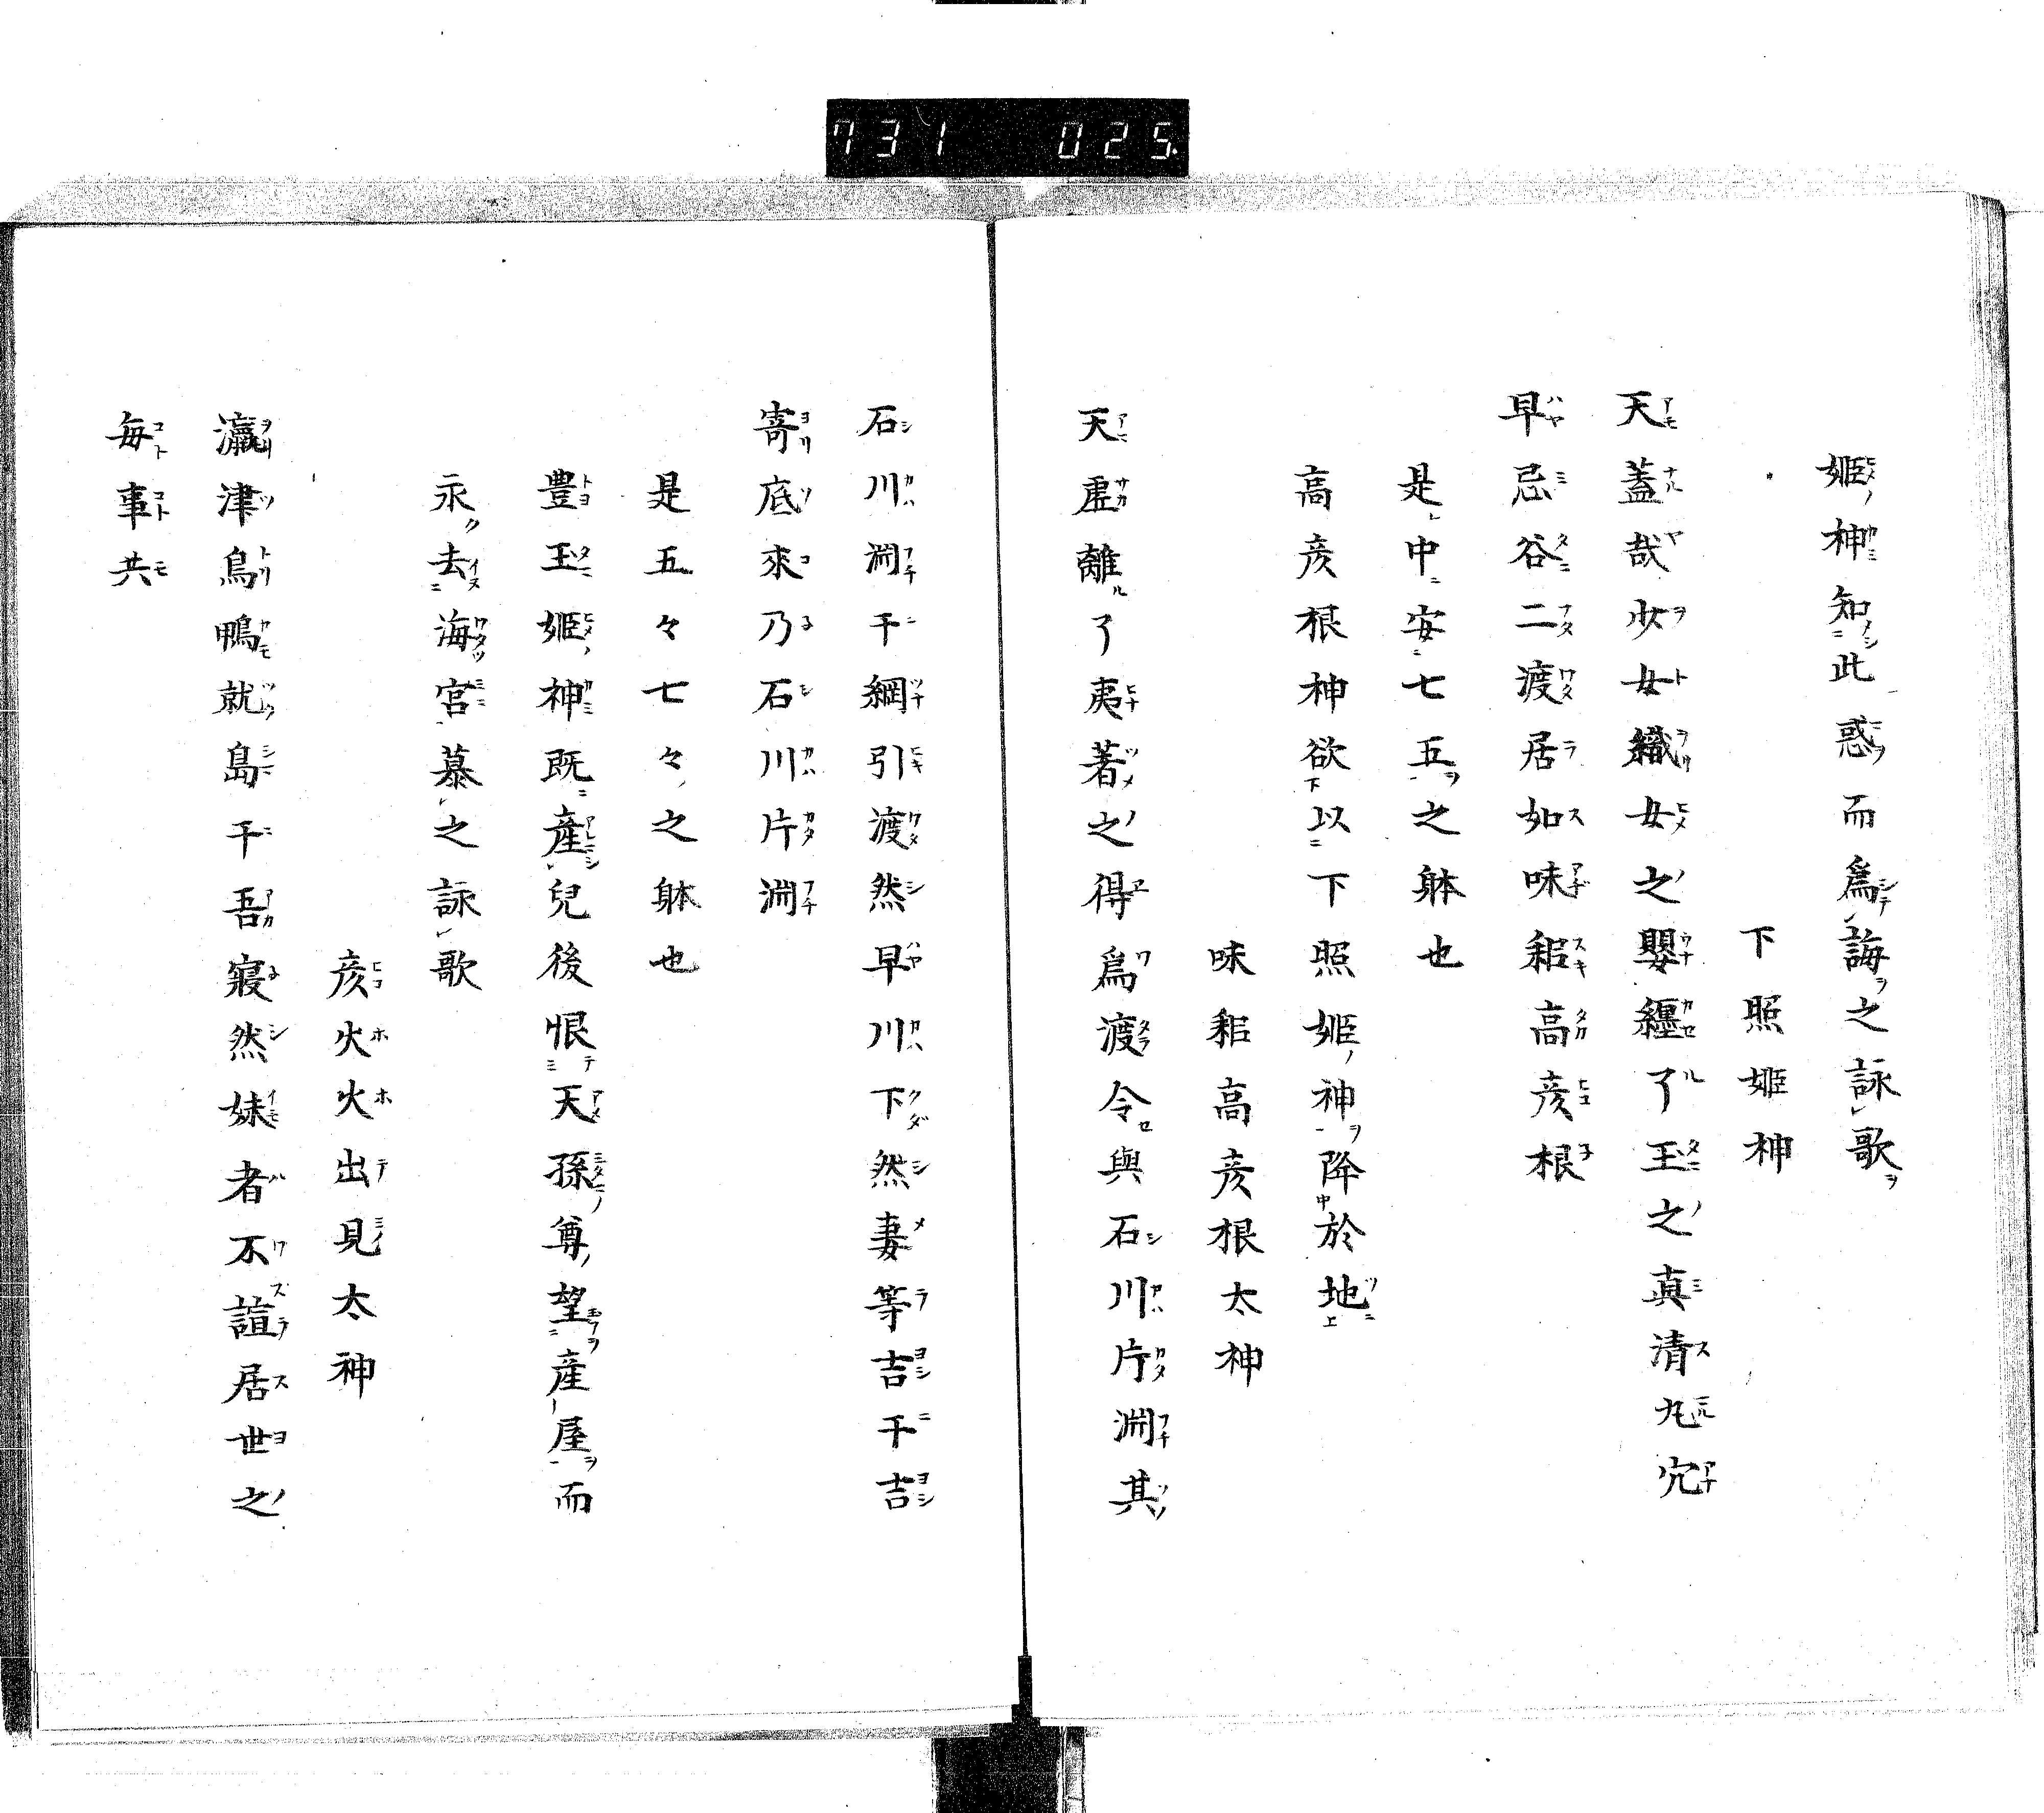 731 025
姫神知此惑而爲誨之詠歌
下照姫神
天蓋哉少女織女之嬰纒了玉之真清丸穴
早忌谷二渡居如味耜高彦根
是中安七五之躰也
高彦根神欲以下照姫神降於地
味耜高彦根太神
天虚離了夷著之得爲渡令與石川片淵其
石川淵干綱引渡然早川下然妻等吉干吉
寄底來乃石川片淵
是五々七々之躰也
豊玉姫神既産兒後恨天孫尊望産屋而
永去海宮慕之詠歌
彦火火出見太神
瀛津鳥鴨就島干吾寢然妹者不諠居世之
毎事共